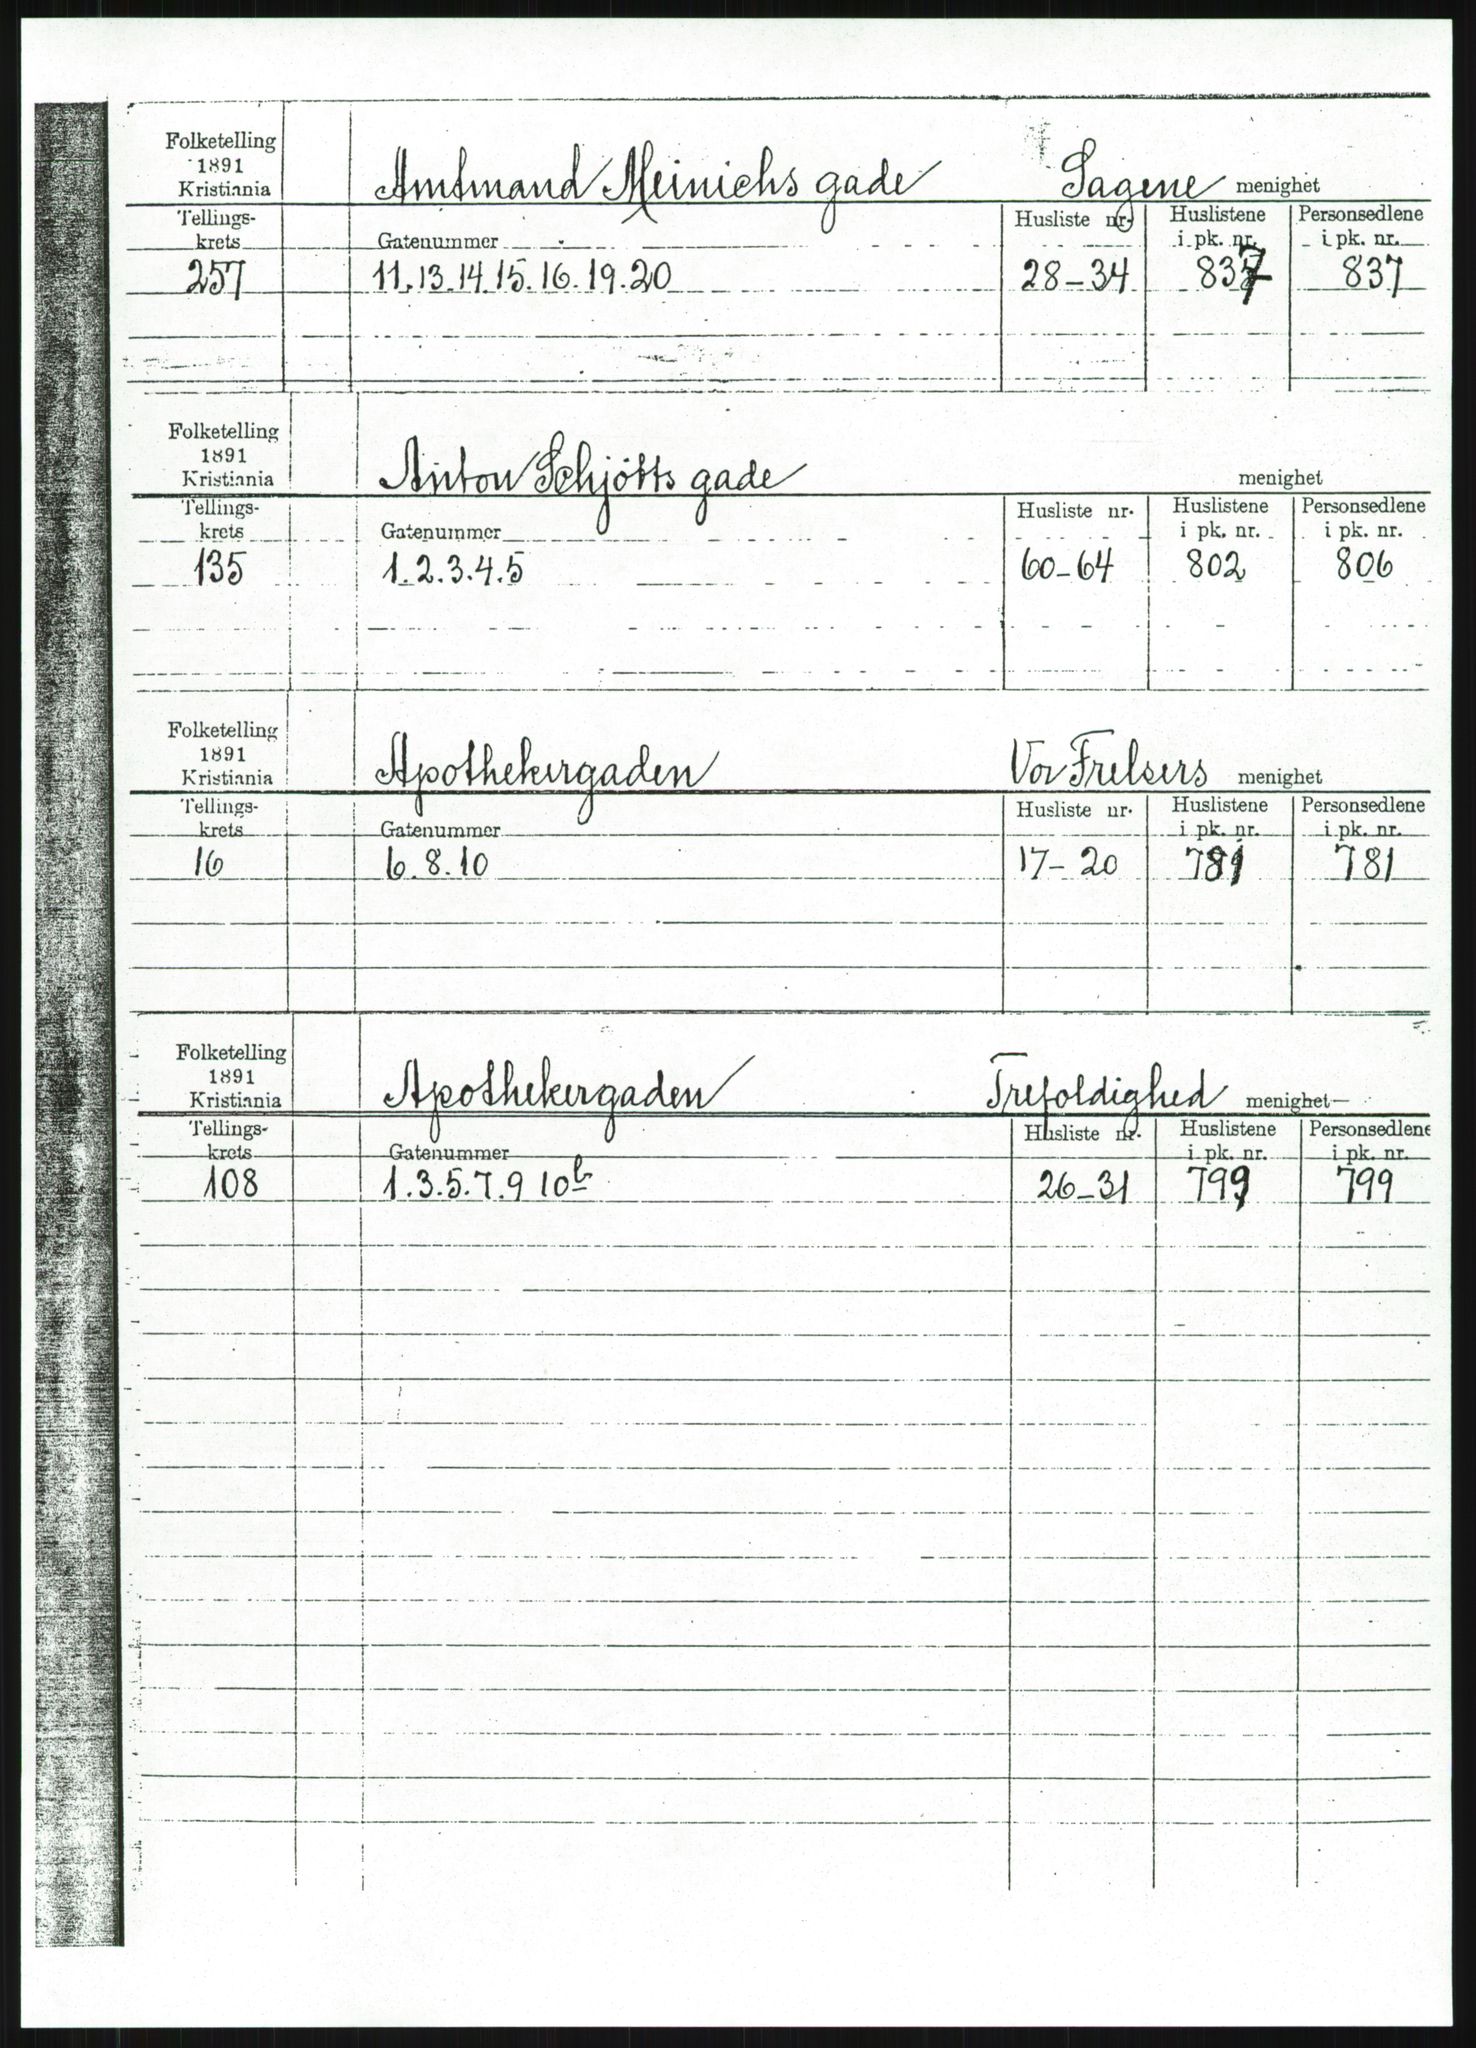 Folketelling
1891
Kristiania Amtmand Meinichs gade Sagene menighet
Tellings-krets Gatenummer Husliste nr. Huslistene i pk. nr. Personsedlene i pk. nr.
257 11. 13. 14. 15. 16. 19. 20 28-34 837 837
Folketelling
1891
Kristiania Anton Schjötts gade menighet
Tellings-krets Gatenummer Husliste nr. Huslistene i pk. nr. Personsedlene i pk. nr.
135 1. 2. 3. 4. 5 60-64 802 806
Folketelling
1891
Kristiania Apothekergaden Vor Frelsers menighet
Tellings-krets Gatenummer Husliste nr. Huslistene i pk. nr. Personsedlene i pk. nr.
16 6. 8. 10 17-20 781 781
Folketelling
1891
Kristiania Apothekergaden Trefoldighed menighet
Tellings-krets Gatenummer Husliste nr. Huslistene i pk. nr. Personsedlene i pk. nr.
108 1. 3. 5. 7. 9 10b 26-31 799 799